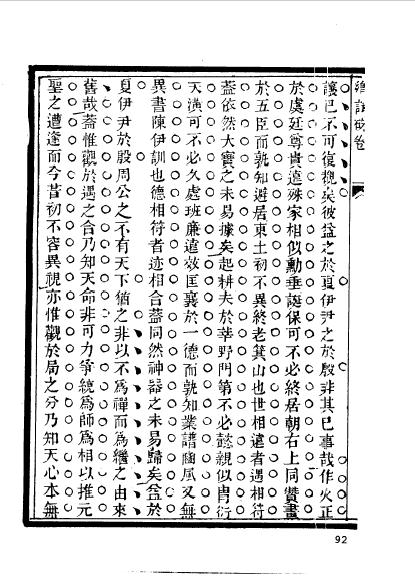 鄉試硃卷
讓已不可復覩矣彼益之於夏伊尹之於殷非其已事哉作火正
於虞廷尊貴遠殊家相似勳垂誕保可不必終居朝右上同贊畫
於五臣而孰知避居東土初不異終老箕山也世相遠者遇相符
蓋依然大寶之未易據矣起耕夫於莘野門第不必懿親似胄衍
天潢可不必久處班廉遠效匡襄於一德而孰知業譜豳風又無
異書陳伊訓也德相符者迹相合蓋同然神器之未易歸矣益於
夏伊尹於殷周公之不有天下猶之非以不為禪而為繼之由來
舊哉蓋惟觀於遇之合乃知天命非可力爭統為師為相以推元
聖之遭逢而今昔初不容異視亦惟觀於局之分乃知天心本無
92